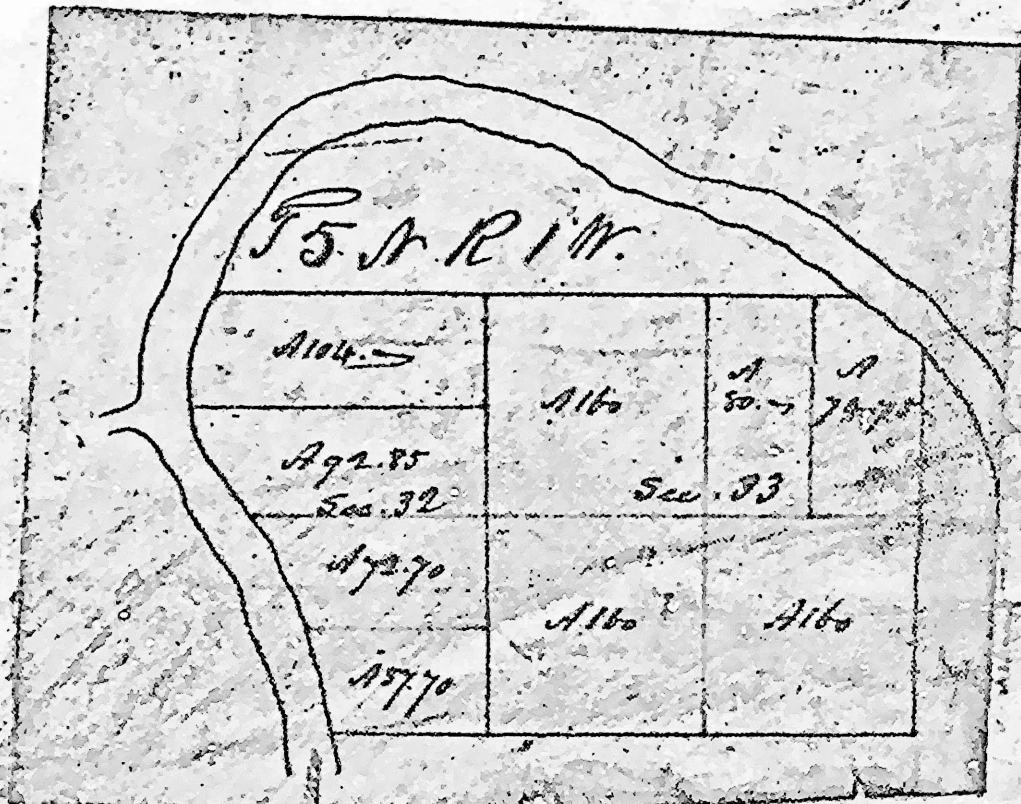 T 5. N. R 1 W.
A 104.
A 160
A
80.
A
78.75
A 92.85
Sec. 32
Sec. 33
A 72.70
A 160
A 160
A 57.70